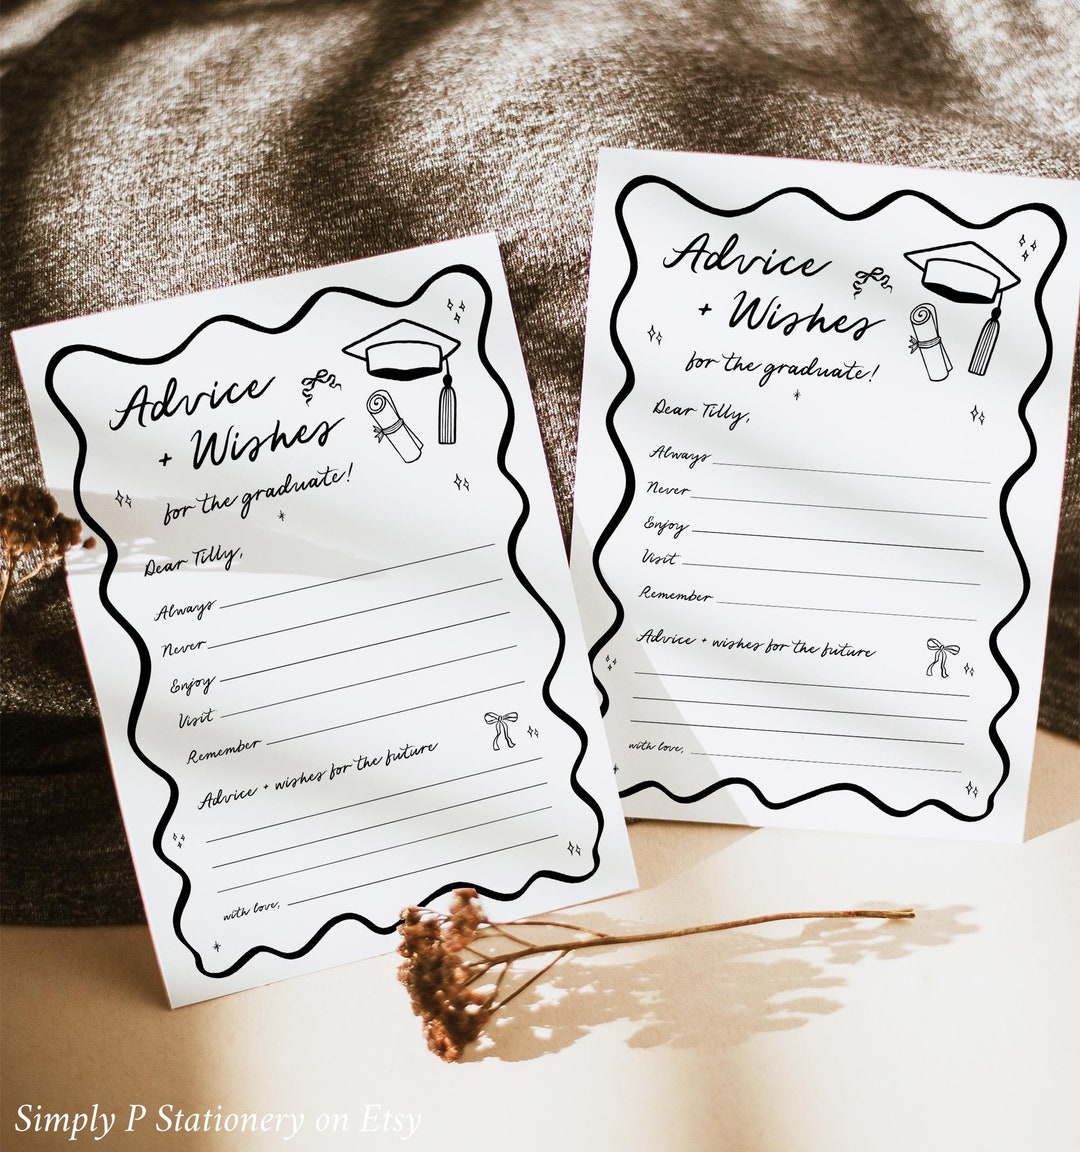 Advice
+ Wishes
for the graduate!
Dear Tilly,
Always
Never
Enjoy
Visit
Remember
Advice + wishes for the future
with love,
Advice
+ Wishes
for the graduate!
Dear Tilly,
Always
Never
Enjoy
Visit
Remember
Advice + wishes for the future
with love,
Simply P Stationery on Etsy